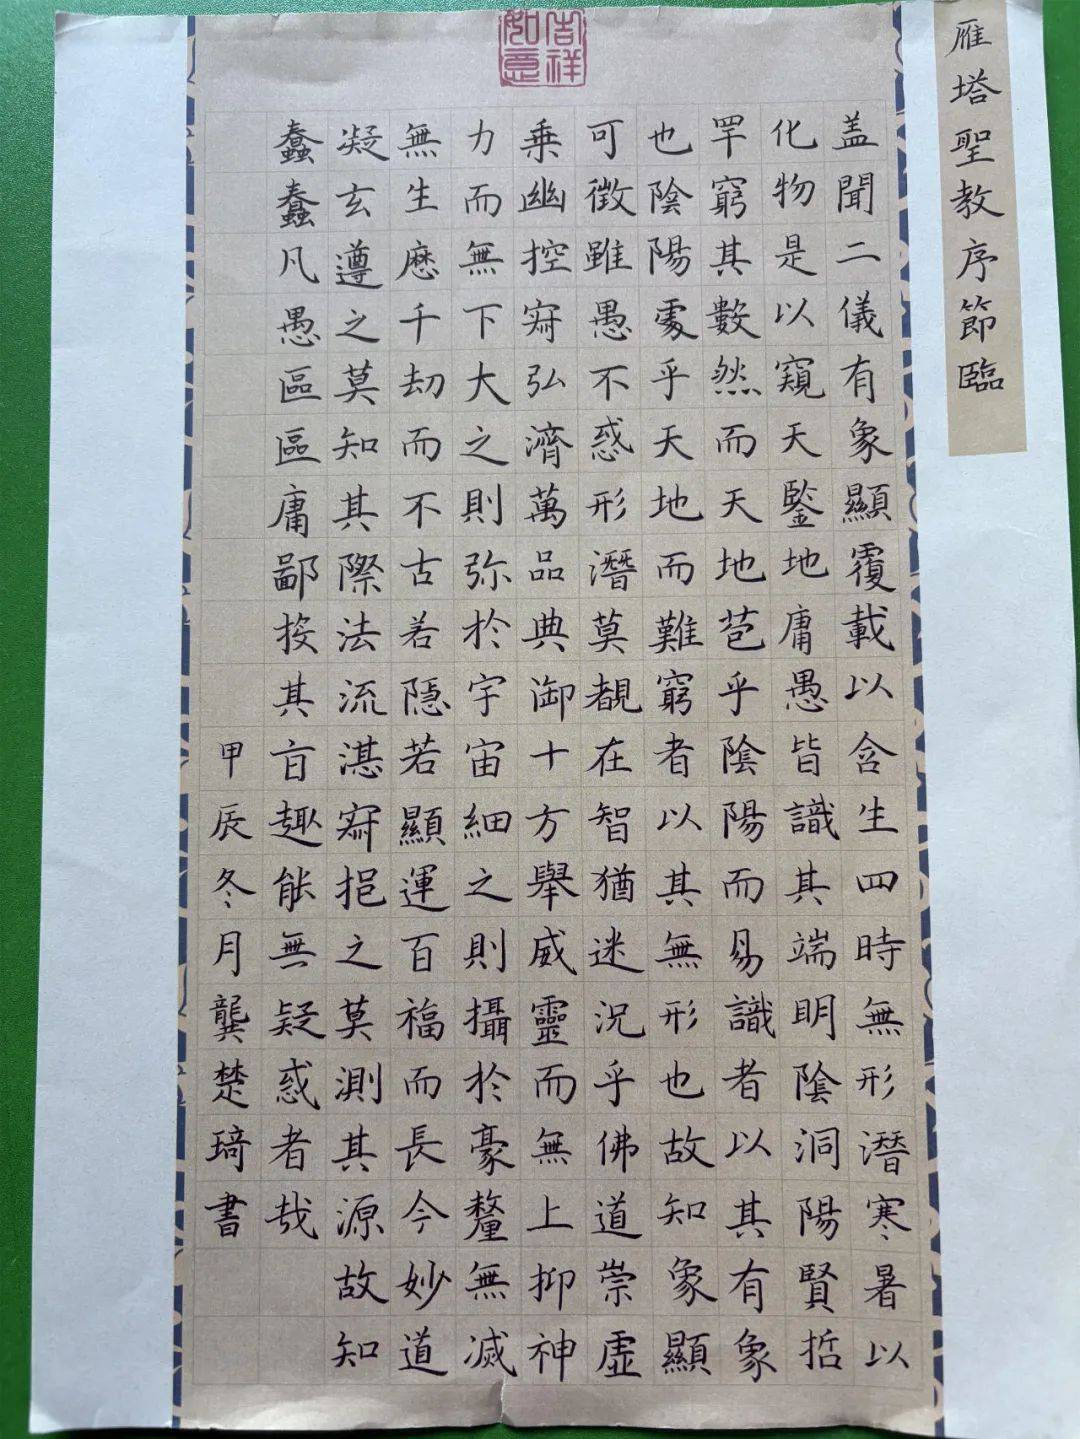 雁塔聖教序節臨
吉祥如意
盖聞二儀有象顯覆載以含生四時無形潛寒暑以
化物是以窺天鑒地庸愚皆識其端明陰洞陽賢哲
罕窮其數然而天地苞乎陰陽而易識者以其有象
也陰陽處乎天地而難窮者以其無形也故知象顯
可徵雖愚不惑形潛莫覩在智猶迷況乎佛道崇虛
乘幽控寂弘濟萬品典御十方舉威靈而無上抑神
力而無下大之則弥於宇宙細之則攝於豪釐無滅
無生歷千劫而不古若隱若顯運百福而長今妙道
凝玄遵之莫知其際法流湛寂挹之莫測其源故知
蠢蠢凡愚區區庸鄙按其旨趣能無疑惑者哉
甲辰冬月龔楚琦書